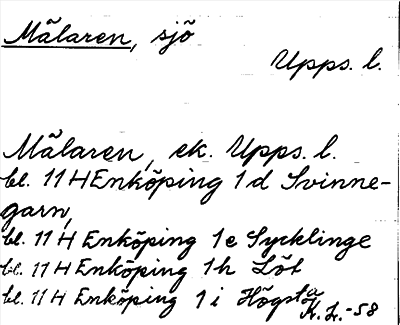 Mälaren, sjö
Upps. l.
Mälaren, ek. Upps. l.
bl. 11 H Enköping 1 d Svinne-
garn,
bl. 11 H Enköping 1 e Sycklinge
bl. 11 H Enköping 1 h Löt
bl. 11 H Enköping 1 i Högsta
K. L. -58